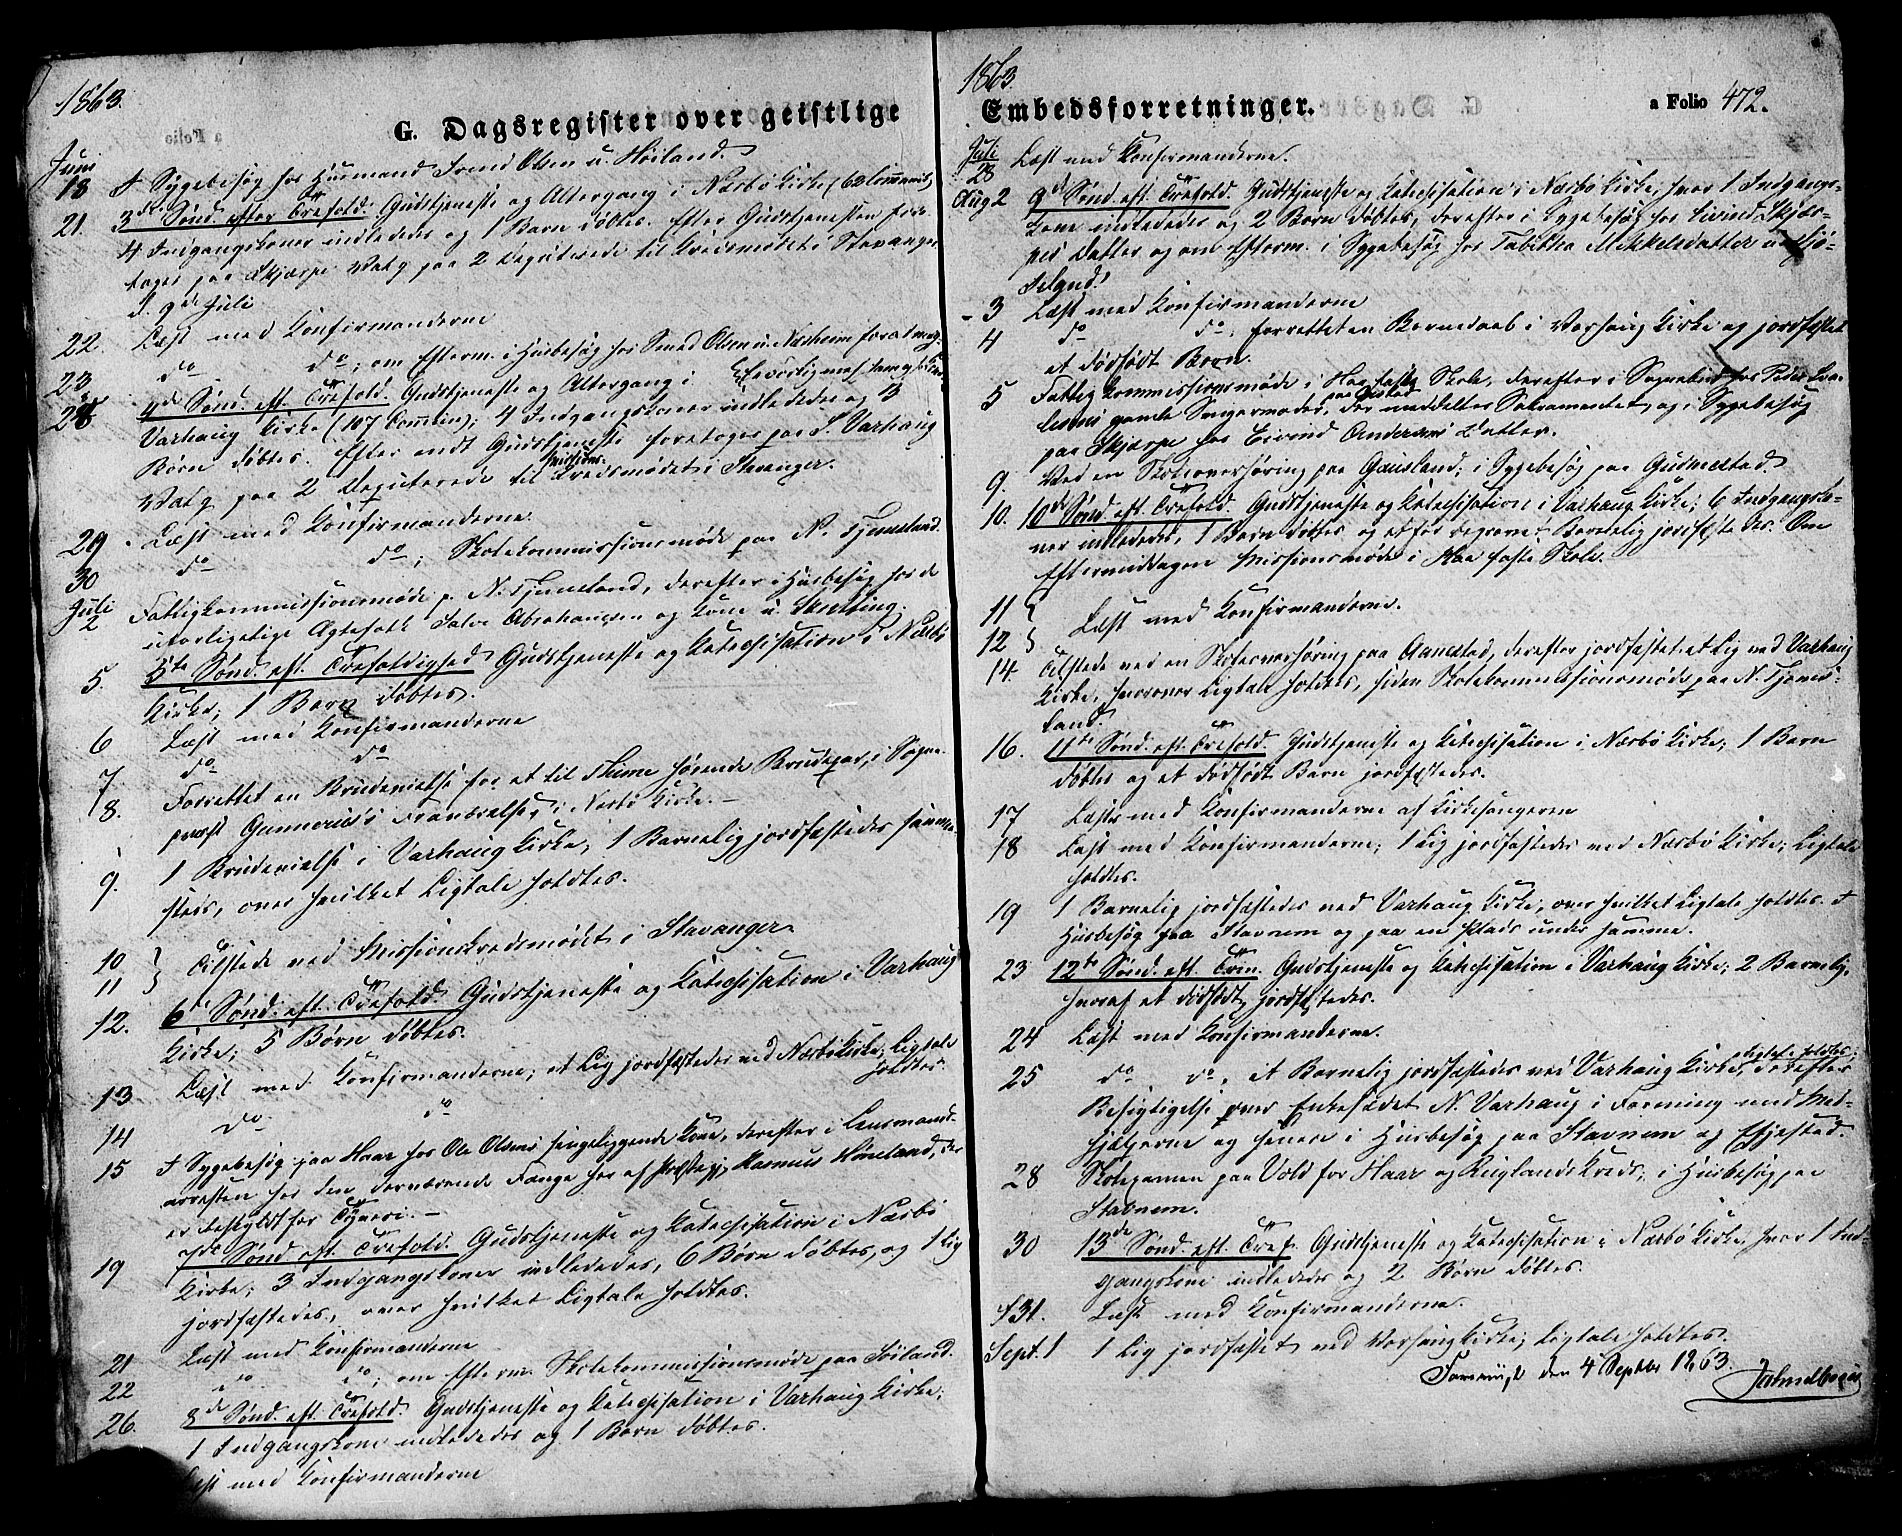 1863.
G. Dagsregister over geistlige
Juni
18 I Sygebesøg hos Husmand Svend Olsen u. Høiland.
21. 3die Sønd. efter Trefold. Gudstjeneste og Altergang i Nærbø Kirke (62 Commun.)
4 Indgangskoner indlededes og 1 Barn døbtes. Efter Gudstjenesten fore-
toges paa Skjærpe Valg paa 2 Deputerede til Kredsmødet i Stavanger
d. 9de Juli
22. Læst med Konfirmanderne
23 do do; om Efterm. i Husbesøg hos Smed Olsen u. Nærheim
28 4de Sønd. eft. Trefold. Gudstjeneste og Altergang i
Varhaug Kirke (107 Commun); 4 Indgangskoner indlededes og 3
Børn døbtes. Efter endt Gudstjeneste foretoges paa S. Varhaug
Valg paa 2 Deputerede til Missions-Kredsmødet i Stavanger.
29 Læst med Konfirmanderne.
30 do do; Skolekommissionsmøde paa N. Tjemsland.
Juli
2 Fattigkommissionsmøde p. N. Tjemsland, derefter i Husbesøg hos de
uforligelige Ægtefolk Salve Abrahamsen og Kone u. Skretting.
5. 5te Sønd. eft. Trefoldighed Gudstjeneste og Katechisation i Nærbø
Kirke; 1 Barn døbtes.
6 Læst med Konfirmanderne
7 do do
8. Forrettet en Brudevielse for et til Thime hørende Brudepar, i Sogne-
præst Gunnerius's Fraværelse, i Nærbø Kirke.
9. 1 Brudevielse i Varhaug Kirke; 1 Barnelig jordfæstedes samme-
steds, over hvilket Ligtale holdtes.
10
11 } Tilstede ved Missionskredsmødet i Stavanger
12. 6te Sønd. eft. Trefold. Gudstjeneste og Katechisation i Varhaug
Kirke; 5 Børn døbtes.
13 Læst med Konfirmanderne; et Lig jordfæstedes ved Nærbø Kirke; Ligtale
holdtes.
14 do do
15 I Sygebesøg paa Haar hos Ole Olsens sengeliggende Kone, derefter i Lensmands-
arresten hos den derværende Fange Rasmus Haneland, der
er beskyldt for Tyveri. —
19 7de Sønd. eft. Trefold. Gudstjeneste og Katechisation i Nærbø
Kirke; 3 Indgangskoner indlededes, 6 Børn døbtes, og 1 Lig
jordfæstedes, over hvilket Ligtale holdtes.
21 Læst med Konfirmanderne
22 do do; om Efterm. Skolekommissionsmøde paa Høiland.
26. 8de Sønd. eft. Trefold. Gudstjeneste og Katechisation i Varhaug Kirke;
1 Indgangskone indlededes og 1 Barn døbtes.
Læst med Konfirmanderne
1863.
Embedsforretninger.
a Folio 472.
Juli
28 Læst med Konfirmanderne.
Aug 2 9de Sønd. eft. Trefold. Gudstjeneste og Katechisation i Nærbø Kirke, hvor 1 Indgangs-
kone indlededes og 2 Børn døbtes, derefter i Sygebesøg hos Eivind Skjær-
pes Datter og om Efterm. i Sygebesøg hos Tabitha Mikkelsdatter
- 3 Læst med Konfirmanderne
4 do do; forrettet en Barnedaab i Varhaug Kirke og jordfæstet
et dødfødt Barn.
5 Fattigkommissionsmøde i Haa faste Skole, derefter i Sognebud hos Peder
gamle Svigermoder, der meddeltes Sakramentet, og i Sygebesøg
paa Skjærpe hos Eivind Andersens Datter.
9. Ved en Skoleoverhøring paa Gausland; i Sygebesøg paa Gudmestad
10. 10de Sønd. eft. Trefold. Gudstjeneste og Katechisation i Varhaug Kirke; 6 Indgangsko-
ner indlededes, 1 Barn døbtes og et før begravet Barnelig jordfæstedes. Om
Eftermiddagen Missionsmøde i Haa faste Skole.
11
12 } Læst med Konfirmanderne.
14 Tilstede ved en Skoleoverhøring paa Aanestad, derefter jordfæstet et Lig ved Varhaug
Kirke, hvorover Ligtale holdtes, siden Skolekommissionsmøde paa N. Tjems-
land.
16. 11te Sønd. eft. Trefold. Gudstjeneste og Katechisation i Nærbø Kirke; 1 Barn
døbtes og et dødfødt Barn jordfæstedes.
17 Læste med Konfirmanderne af Kirkesangeren
18 Læst med Konfirmanderne; 1 Lig jordfæstedes ved Nærbø Kirke; Ligtale
holdtes.
19 1 Barnelig jordfæstedes ved Varhaug Kirke, over hvilket Ligtale holdtes. I
Husbesøg paa Stavnem og paa en Plads under samme.
23 12te Sønd. eft. Trin. Gudstjeneste og Katechisation i Varhaug Kirke; 2 Barnelig,
hvoraf et dødfødt, jordfæstedes.
24 Læst med Konfirmanderne.
25 do do, et Barnelig jordfæstedes ved Varhaug Kirke, Ligtale holdtes; derefter
Besigtigelse over Enkesædet N. Varhaug i Forening med Med-
hjælperne og senere i Husbesøg paa Stavnem og
28 Skoleexamen paa Vold for Haar og Kuglands Kreds, i Husbesøg paa
Stavnem.
30 13de Sønd. eft. Tref. Gudstjeneste og Katechisation i Nærbø Kirke, hvor 1 Ind-
gangskone indlededes og 2 Børn døbtes.
31. Læst med Konfirmanderne.
Sept. 1 1 Lig jordfæstet ved Varhaug Kirke; Ligtale holdtes.
den 4 Septbr 1863.